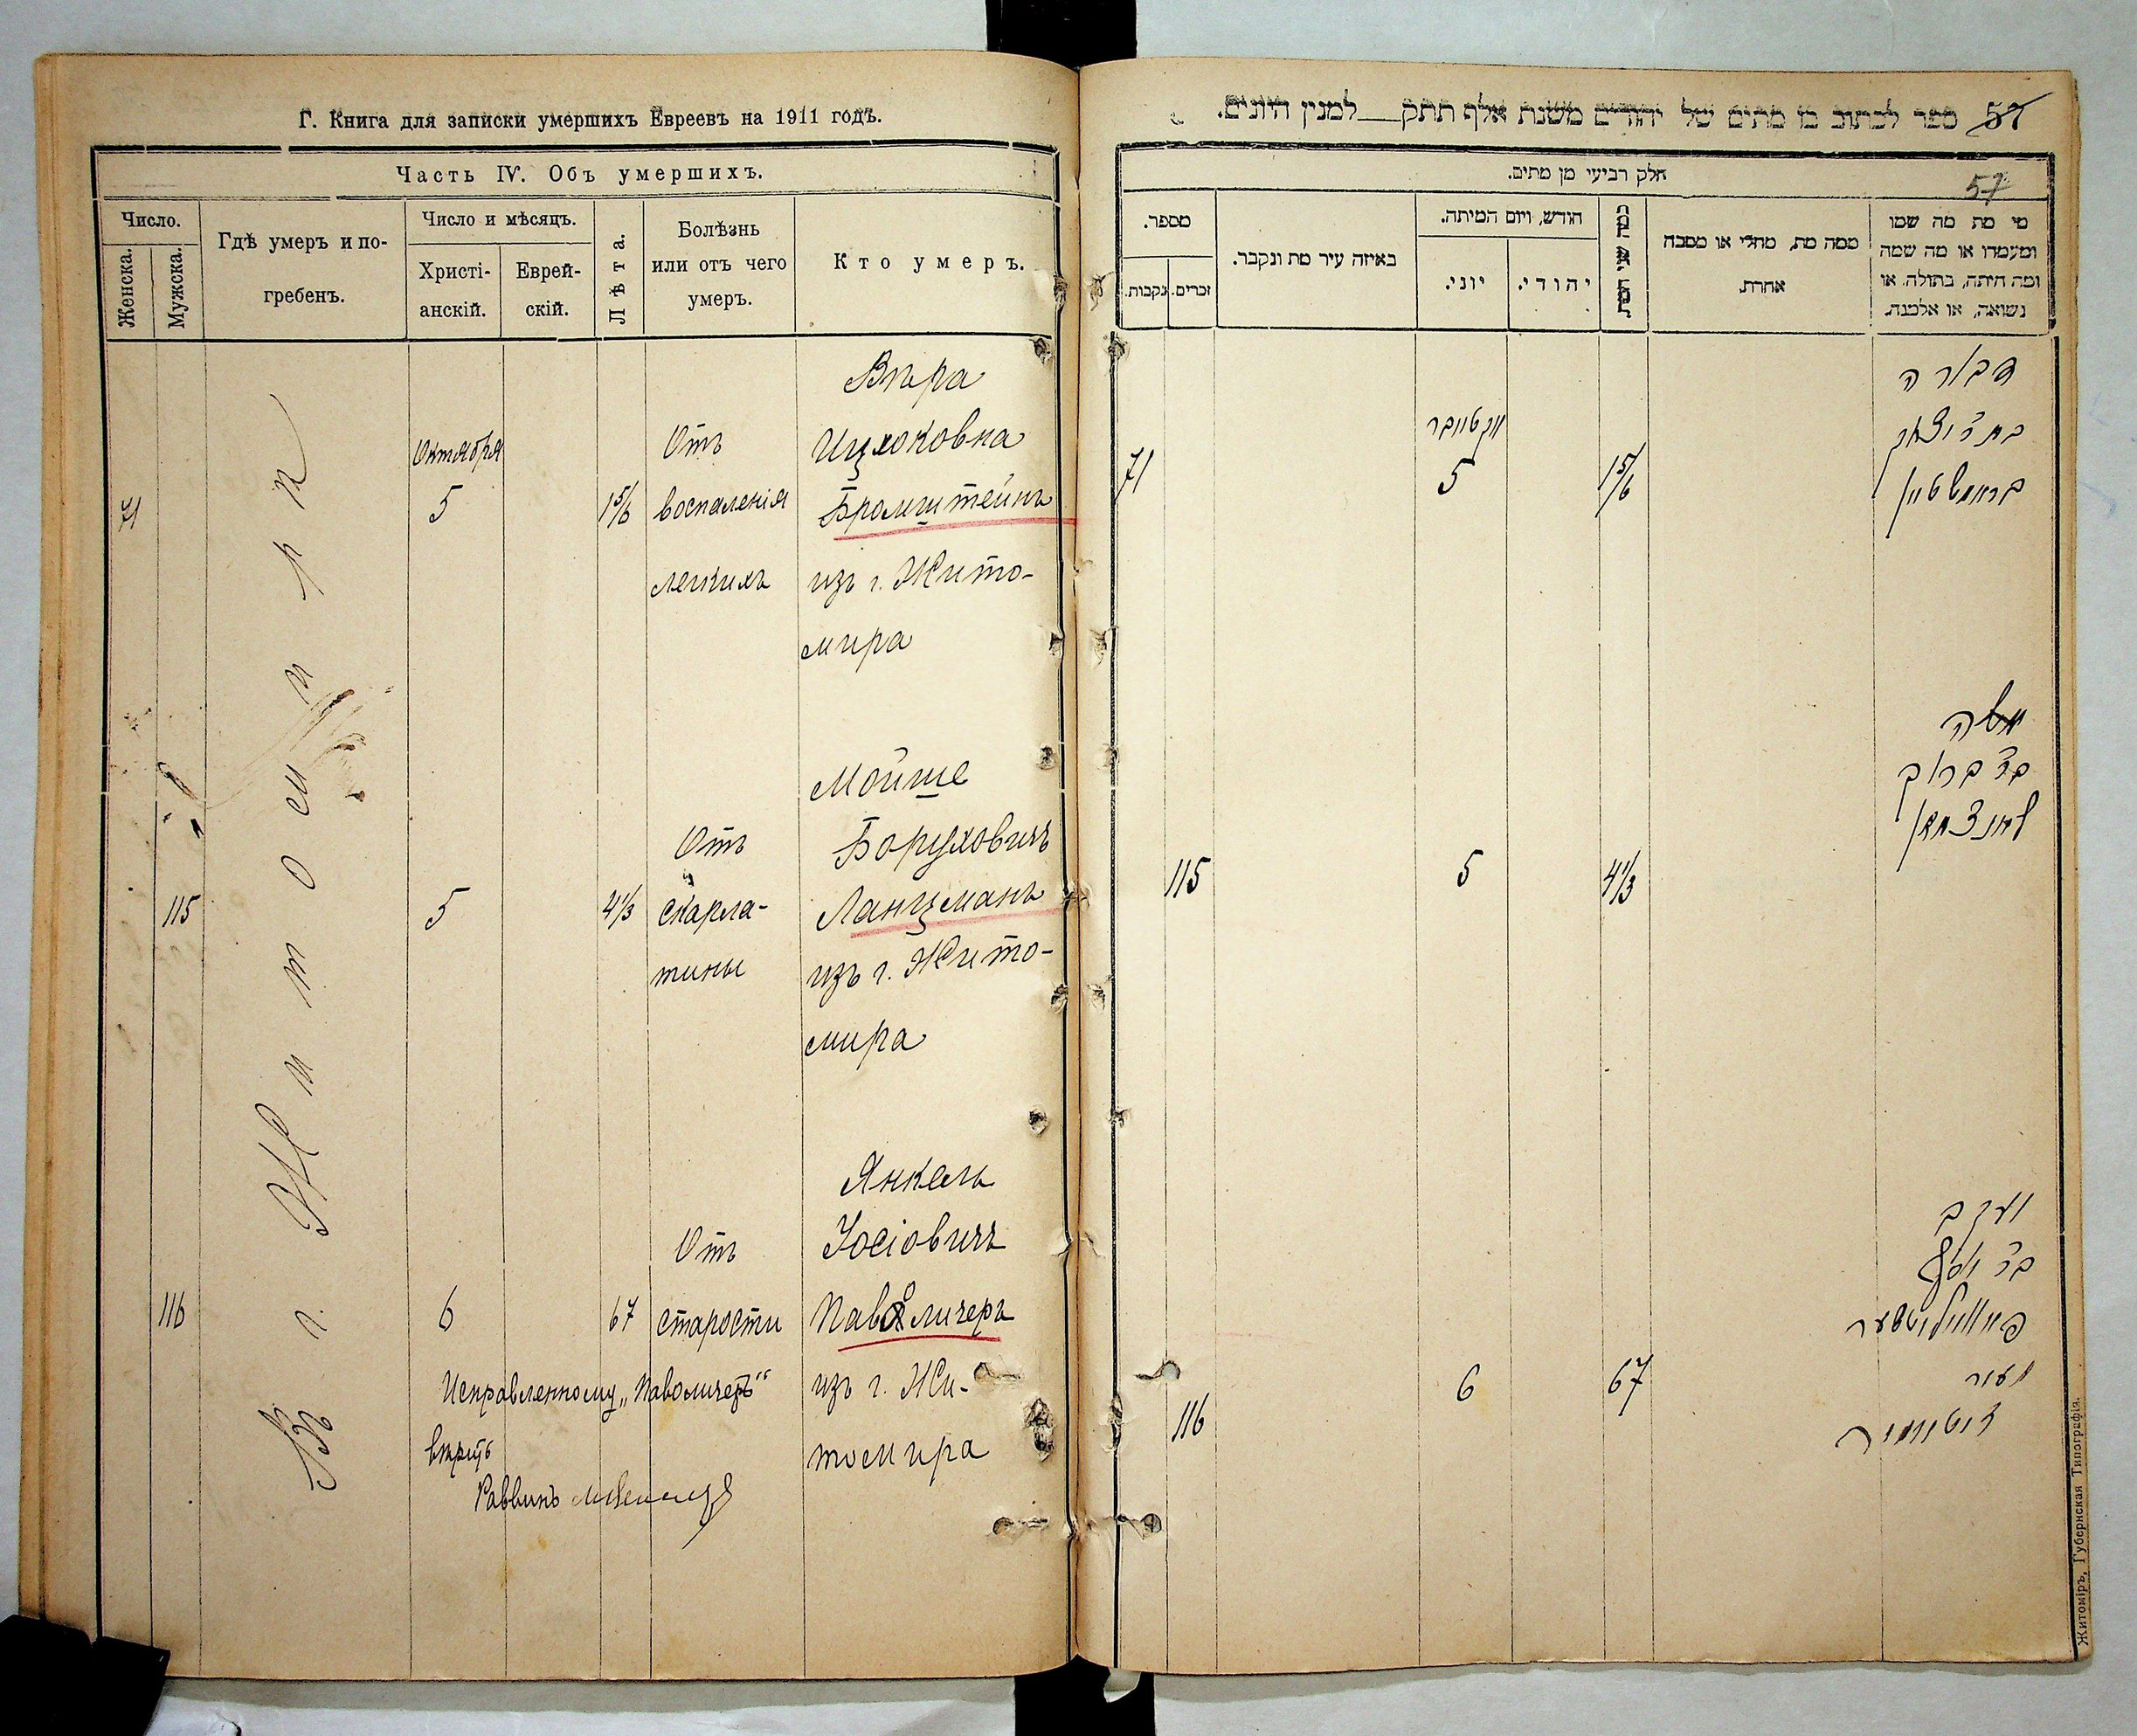 Г. Книга для записки умершихъ Евреевъ на 1911 годъ.
Часть IV. Объ умершихъ.
Число.
Женска.
Мужска.
Гдѣ умеръ и по-
гребенъ.
Число и мѣсяцъ.
Христі-
анскій.
Еврей-
скій.
Лѣта.
Болѣзнь
или отъ чего
умеръ.
Кто умеръ.
Въ г. Житомирѣ
71
Октября
5
1 5/6
Отъ
воспаленія
легкихъ
Вѣра
Ицхоковна
Бромштейнъ
изъ г. Жито-
мира
115
5
4 1/3
Отъ
скарла-
тины
Мойше
Боруховичъ
Ланцманъ
изъ г. Жито-
мира
116
6
67
Отъ
старости
Янкель
Іосіовичъ
Паволичеръ
изъ г. Жи-
томира
Исправленному „Паволичеръ“
вѣрить
Раввинъ
57 ספר לכתוב בו מתים של יהודים משנת אלף תתק__למנין היונים.
חלק רביעי מן מתים.
57
מספר.
נקבות.
זכרים.
באיזה עיר מת ונקבר.
חודש, ויום המיתה.
יוני.
יהודי.
כמה שני המת
ממה מת, מחלי או מסבה
אחרת.
מי מת מה שמו
ומעמדו או מה שמה
ומה היתה, בתולה, או
נשואה, או אלמנה.
71
אקטאבר
5
1 5/6
דבורה
בת ר' יצחק
בראמשטיין
115
5
4 1/3
משה
בר' ברוך
לאנצמאן
116
6
67
יעקב
בר' יוסף
פאוואליטשער
מעיר
זיטאמיר
Житоміръ, Губернская Типографія.